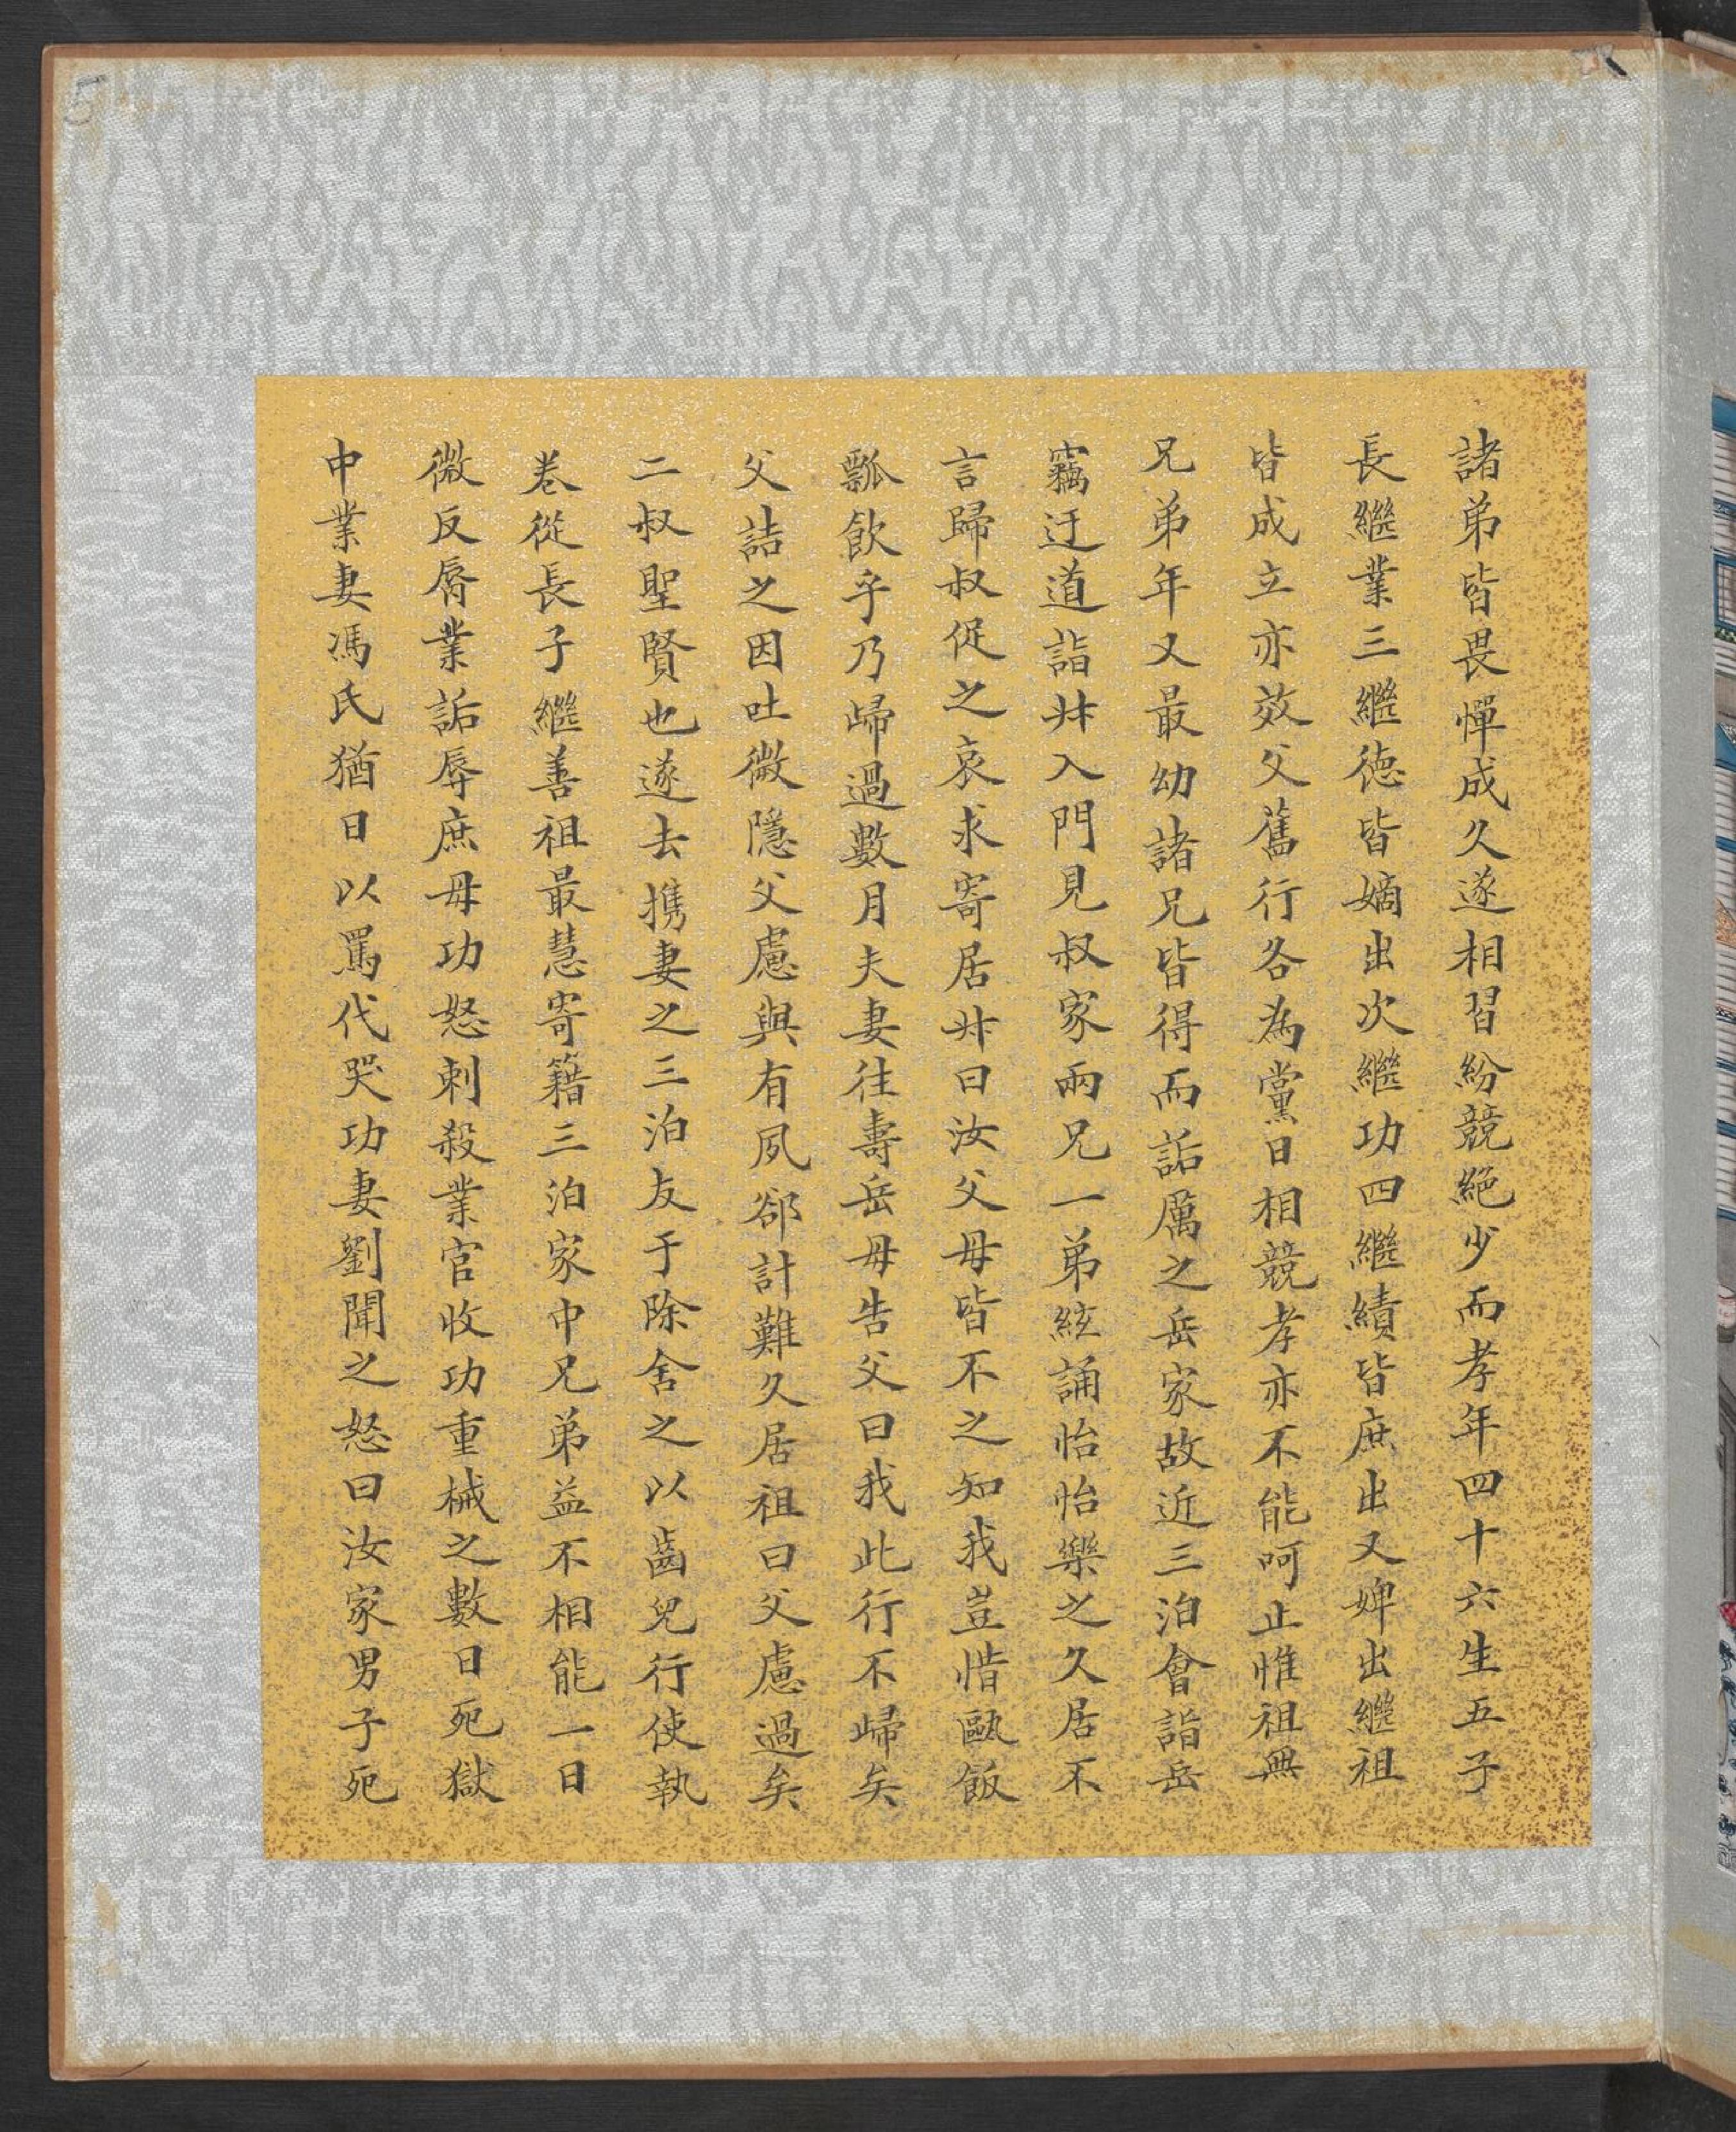 諸弟皆畏憚成久遂相習紛競絕少而孝年四十六生五子
長繼業三繼德皆嫡出次繼功四繼績皆庶出又婢出繼祖
皆成立亦效父舊行各為黨日相競孝亦不能呵止惟祖無
兄弟年又最幼諸兄皆得而詬厲之岳家故近三泊會詣岳
竊迂道詣叔入門見叔家兩兄一弟絃誦怡怡樂之久居不
言歸叔促之哀求寄居叔曰汝父母皆不之知我豈惜甌飯
瓢飲乎乃歸過數月夫妻往壽岳母告父曰我此行不歸矣
父詰之因吐微隱父慮與有夙郤計難久居祖曰父慮過矣
二叔聖賢也遂去攜妻之三泊友于除舍之以齒兒行使執
卷從長子繼善祖最慧寄籍三泊家中兄弟益不相能一日
微反脣業詬辱庶母功怒刺殺業官收功重械之數日死獄
中業妻馮氏猶日以罵代哭功妻劉聞之怒曰汝家男子死